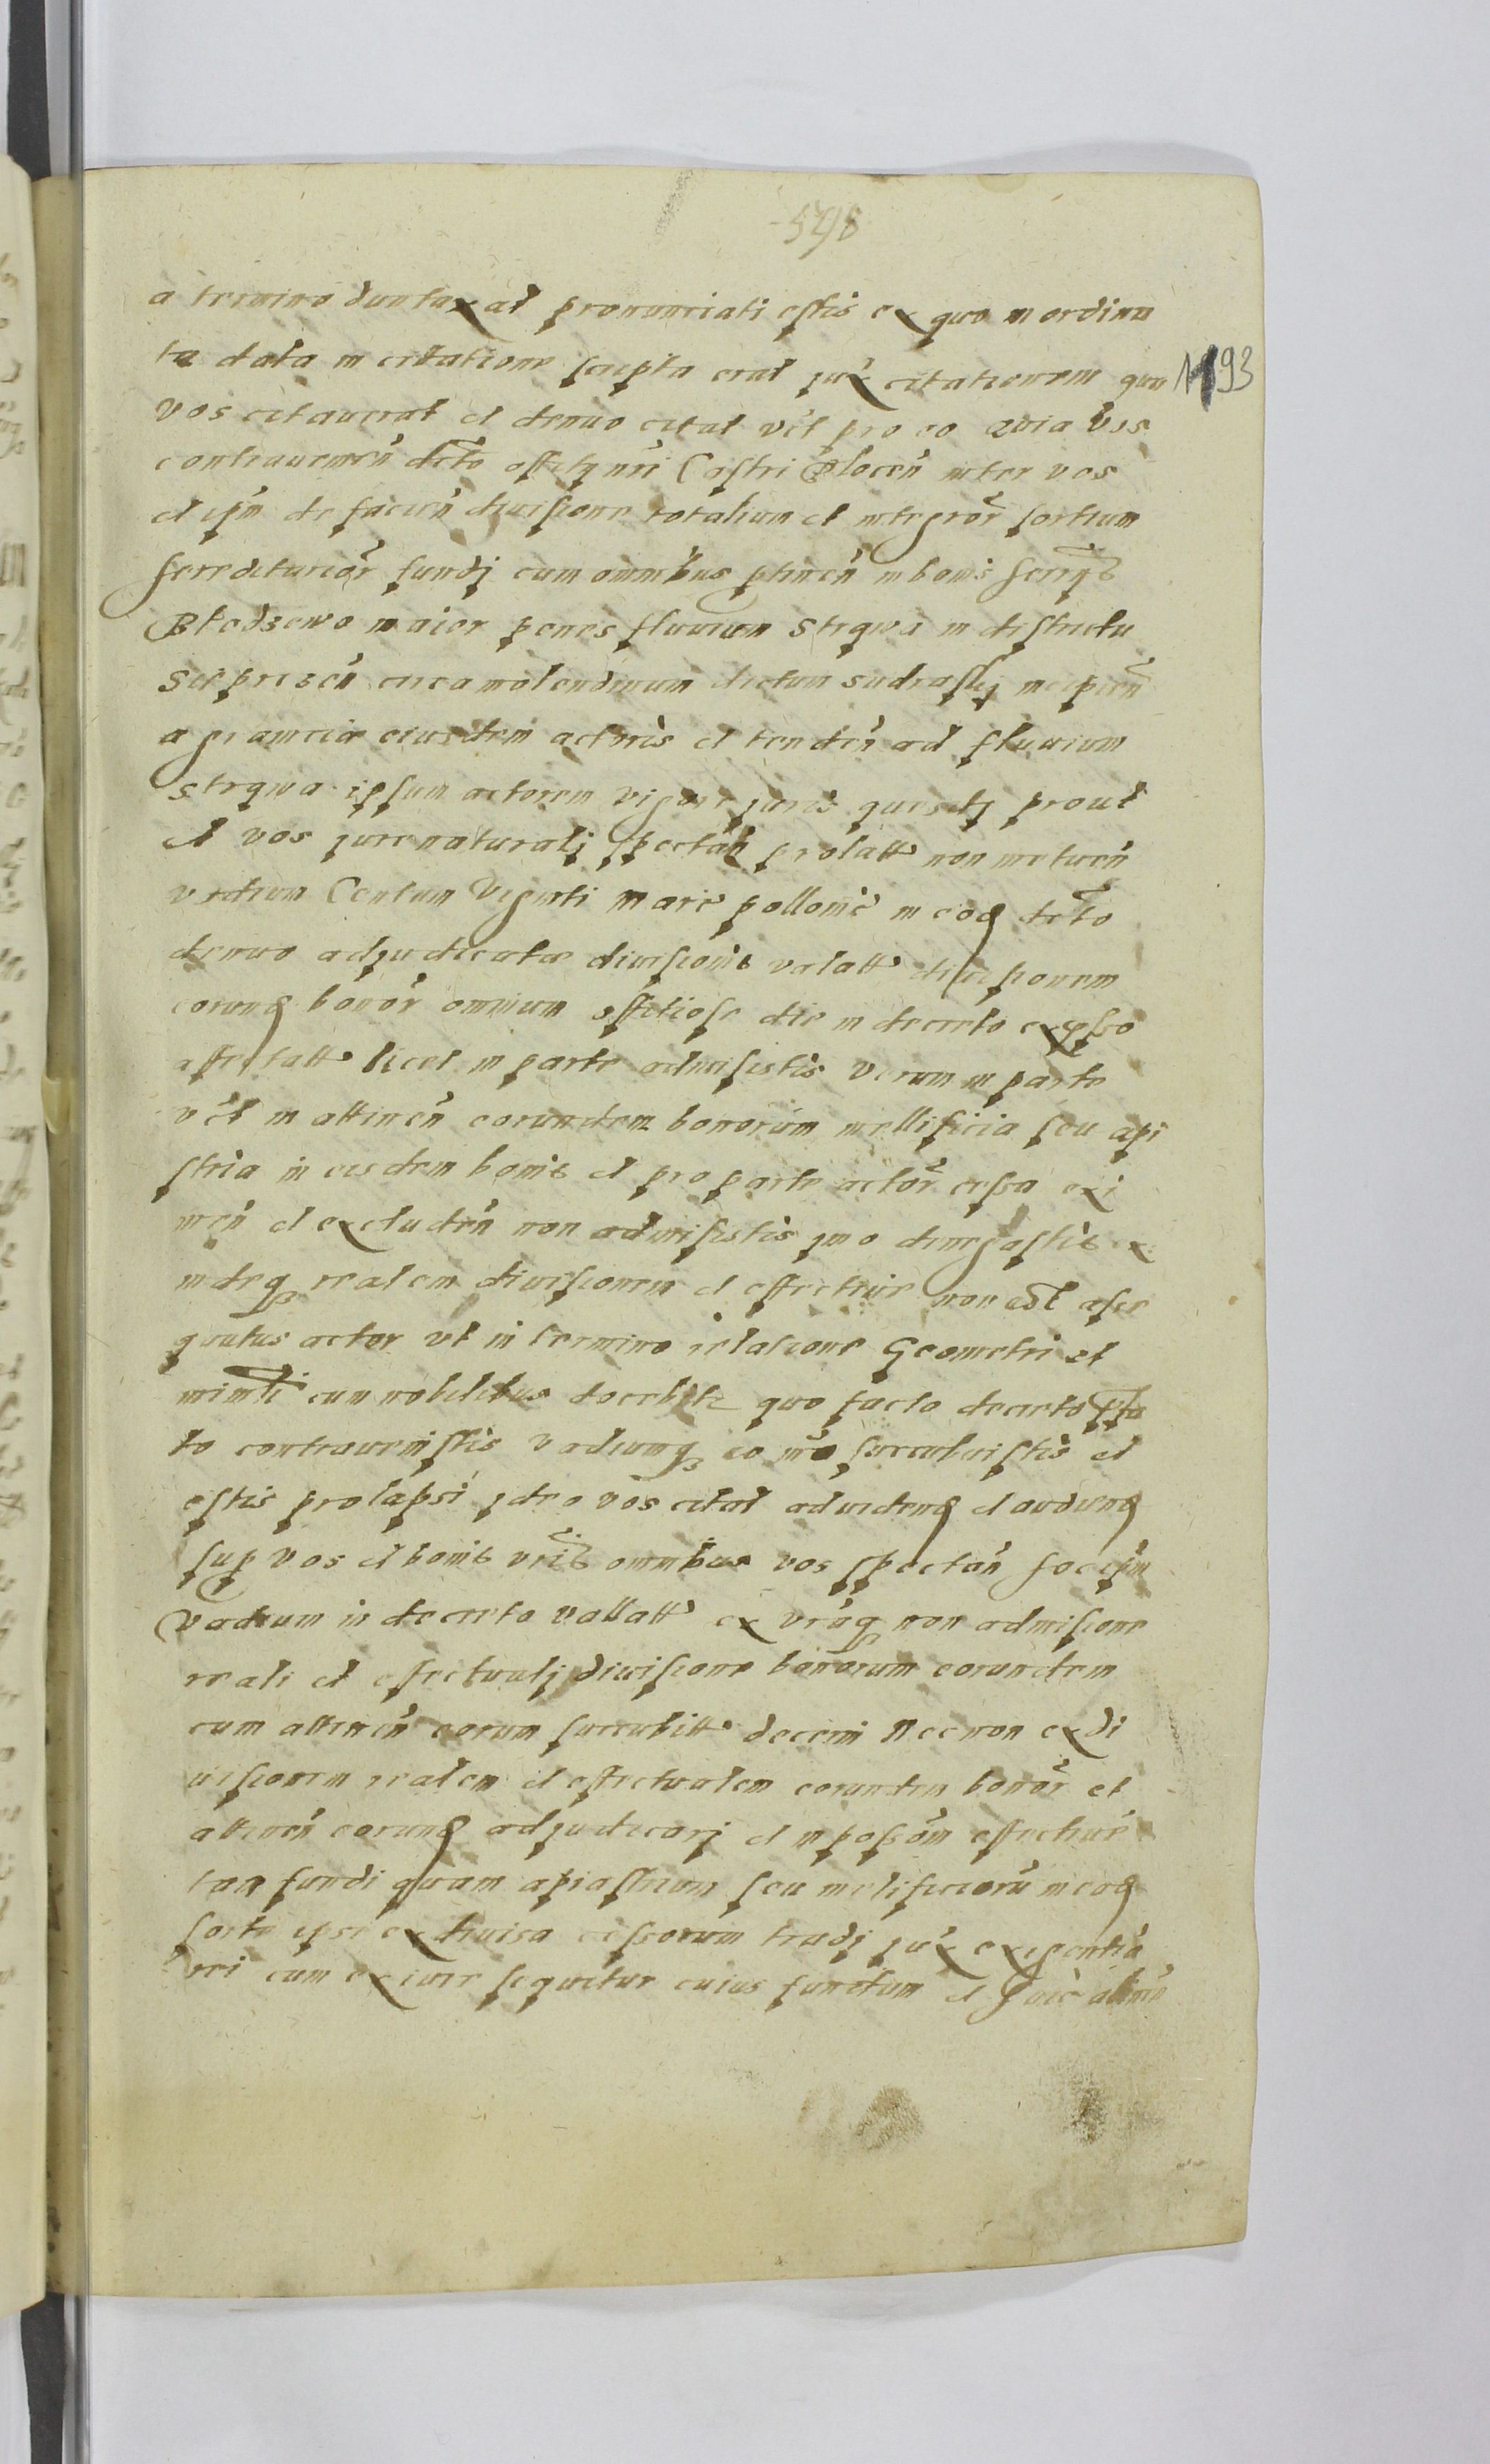 548
1193
a termino duntaxat pronunciati estis ex quo in ordina
ta data in citatione scripta erat jux citationem qua
vos citaverat et denuo citat vět pro eo Quia vos
contravenień dcto officij nrī Castri Plocēn inter vos
et ipm de facień divisione totalium et integrōr sortium
hereditariōr fundj cum omnibus ptinēn in bonis
Bledzewo maior penes fluvium Strqwa in districtu
Sieprczēn circa molendinum dictum sudrasky incipień
a graniciæ eiusdem actoris et tendēn ad fluvium
Strqwa ipsum actorem vigore juris quesitj prout
et vos jure naturalj spectān prolatt non metuēn
vadium Centum Viginti marc pollonic in eod dcto
denuo adjudicatæ divisionis valatt divisionem
eorund bonōr omnium officiose die in decreto expsso
affectatt licet in parte admisistis verum in parte
vět in attinēn eorundem bonorum mellificia seu api
stria in eisdem bonis et pro parte actōr cessa exi
mēn et excludēn non admisistis jmo denegastis
indeq realem divisionem et effective non est asse
quutus actor vt in termino relatione Geometri et
minlī cum nobilibus docebit quo facto decreto
to contravenistis vadiumq eo nrō succubuistis et
estis prolapsi jdeo vos citat ad videnđ et audienđ
sup vos et bonis vrīs omnibus vos spectān hocipm
Vadium in decreto vallatt ex vrāq non admisione
reali et effectualj divisione bonorum eorundem
cum attinēn eorum succubitt decerni Nec non ex di
visionem realem et effectualem eorundem bonōr et
attinēn eorund adjudicarj et in possōm effective
tan fundi quam apiastrium seu melificiorū in eod
sorte ipsi ex divisa cessorum tradj jux exigentia
cum exinde sequitur cuius functum et huic